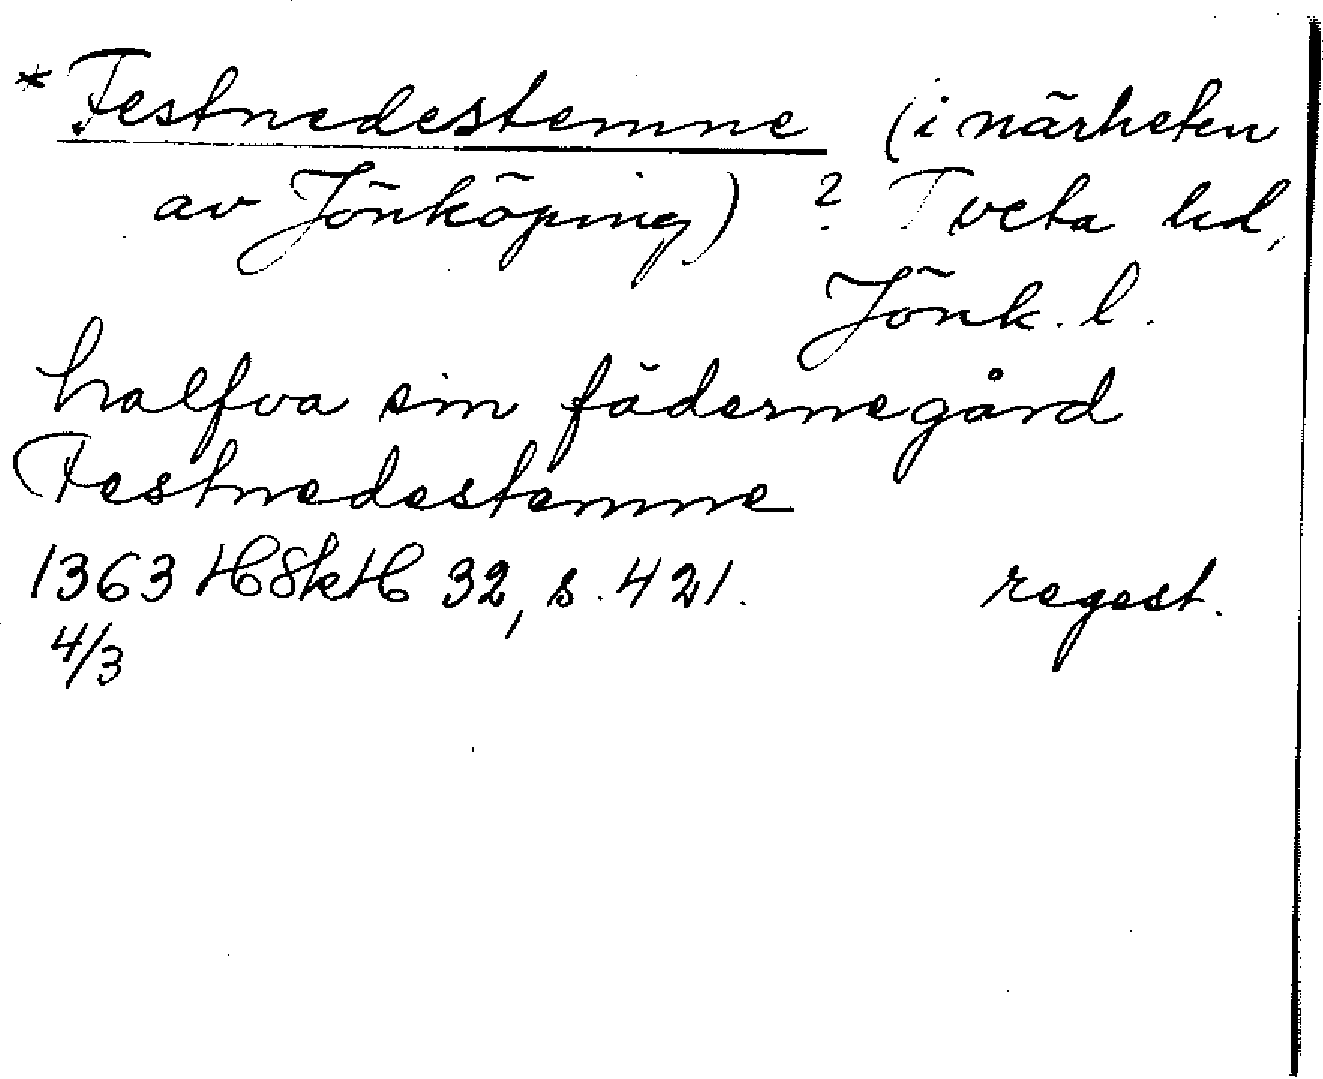 * Festnedestemne (i närheten
av Jönköping) ? Tveta hd,
Jönk. l.
halfva sin fädernegård
Festnedestemne
1363 HSkH 32, s. 421. regest.
4/3